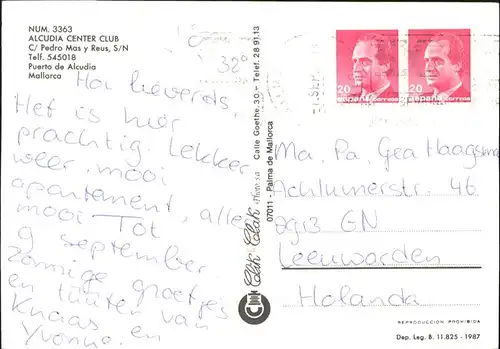 NUM. 3363
ALCUDIA CENTER CLUB
C/ Pedro Mas y Reus, S/N
Telf. 545018
Puerto de Alcudia
Mallorca
32°
Hoi lieverds,
Het is hier
prachtig. Lekker
weer, mooi
apartement, alles
mooi Tot
9 september.
Zonnige groetjes
en van
Klaas en
Yvonne.
Clik-Clak
Calle Goethe, 30. - Telef. 28 91 13
07011 - Palma de Mallorca
20
España correos
20
España correos
Ma, Pa, Gea Haagsma
Achlumerstr. 46
GN
Leeuwarden
Holanda
REPRODUCCION PROHIBIDA
Dep. Leg. B. 11.825 - 1987